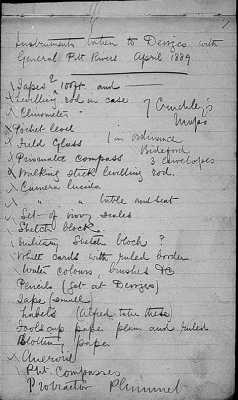 Instruments taken to Devizes with
General Pitt Rivers April 1889
2 Tapes 100ft and
Levelling rod in case
Cruchley's
Maps
Clinometer
Pocket level
Field Glass
1 in ordnance
Bideford
Prismatic compass
3 envelopes
Walking stick levelling rod.
Camera lucida
" " " table and seat
Set of ivory scales
Sketch block.
Military Sketch block ?
White cards with ruled border
Water colours, brushes &c
Pencils (get at Devizes)
Tape (small)
Labels
Foolscap paper plain and ruled
Blotting paper
Aneroid
Compasses
Protractor Plummet